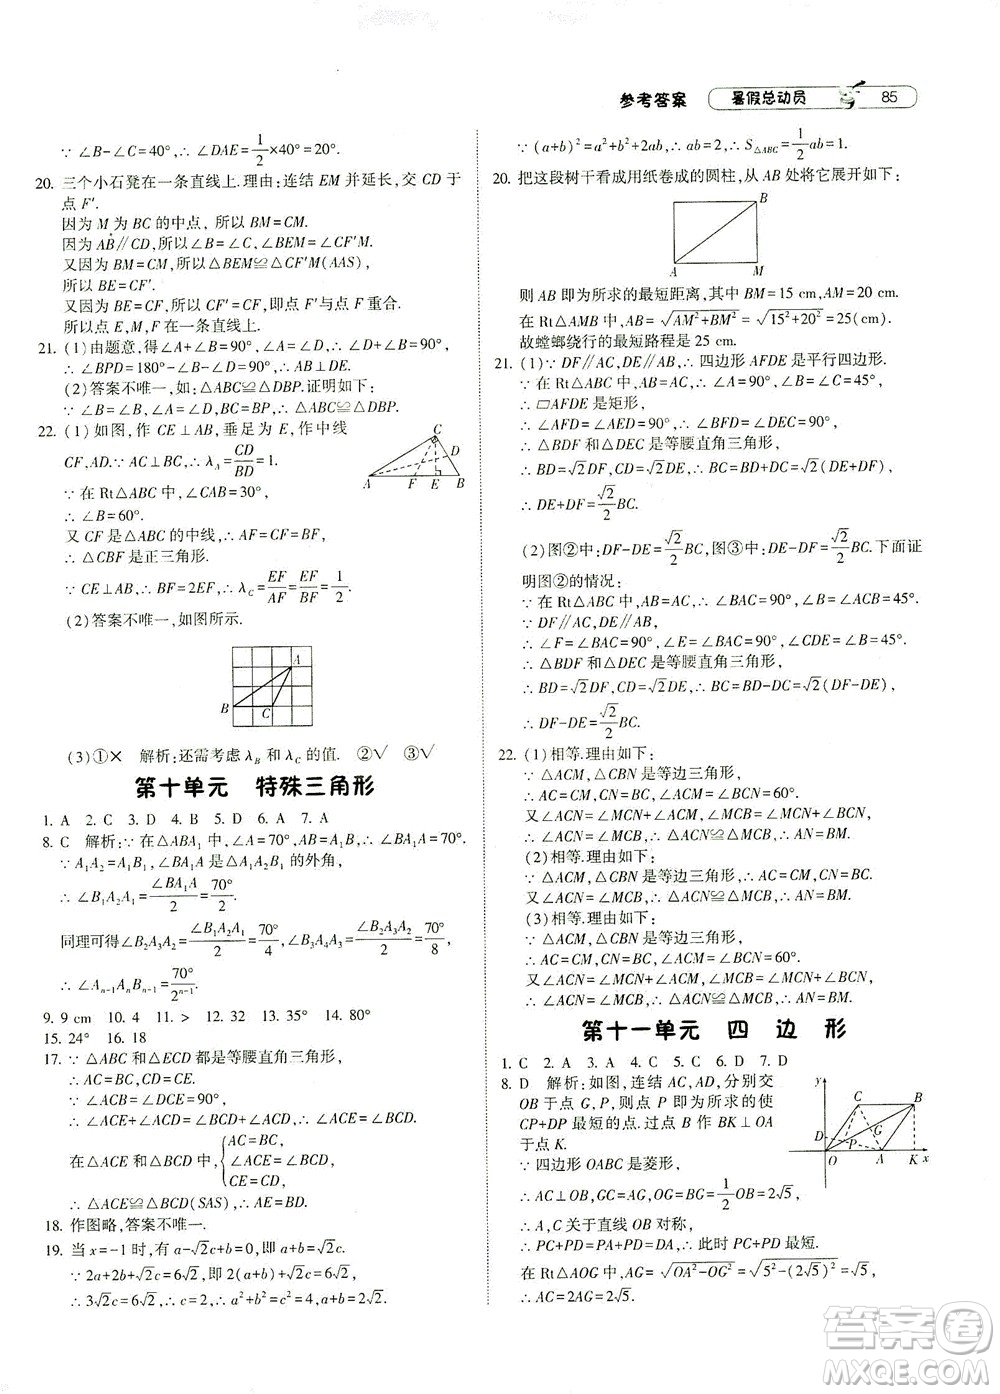 参考答案 暑假总动员 85
∵ ∠B-∠C=40°,∴ ∠DAE=1/2×40°=20°.
20. 三个小石凳在一条直线上.理由:连结 EM 并延长,交 CD 于
点 F′.
因为 M 为 BC 的中点,所以 BM=CM.
因为 AB∥CD,所以∠B=∠C,∠BEM=∠CF′M.
又因为 BM=CM,所以△BEM≌△CF′M(AAS),
所以 BE=CF′.
又因为 BE=CF,所以 CF=CF′,即点 F′与点 F 重合.
所以点 E,M,F 在一条直线上.
21. (1)由题意,得∠A+∠B=90°,∠A=∠D,∴ ∠D+∠B=90°,
∴ ∠BPD=180°-∠B-∠D=90°,∴ AB⊥DE.
(2)答案不唯一,如:△ABC≌△DBP.证明如下:
∵ ∠B=∠B,∠A=∠D,BC=BP,∴ △ABC≌△DBP.
22. (1)如图,作 CE⊥AB,垂足为 E,作中线
CF,AD.∵ AC⊥BC,∴ λA=CD/BD=1.
∵ 在 Rt△ABC 中,∠CAB=30°,
∴ ∠B=60°.
又 CF 是△ABC 的中线,∴ AF=CF=BF.
∴ △CBF 是正三角形.
∵ CE⊥AB,∴ BF=2EF,∴ λC=EF/AF=EF/BF=1/2.
C
D
A F E B
(2)答案不唯一,如图所示.
A
B C
(3)①× 解析:还需考虑 λB 和 λC 的值. ②√ ③√
第十单元 特殊三角形
1. A 2. C 3. C 4. B 5. D 6. A 7. A
8. C 解析:∵ 在△ABA₁ 中,∠A=70°,AB=A₁B,∴ ∠BA₁A=70°.
∵ A₁A₂=A₁B₁,∠BA₁A 是△A₁A₂B₁ 的外角,
∴ ∠B₁A₂A₁=∠BA₁A/2=70°/2.
同理可得∠B₂A₃A₂=∠B₁A₂A₁/2=70°/4,∠B₃A₄A₃=∠B₂A₃A₂/2=70°/8,
∴ ∠Aₙ₋₁AₙBₙ₋₁=70°/2ⁿ⁻¹.
9. 9 cm 10. 4 11. > 12. 32 13. 35° 14. 80°
15. 24° 16. 18
17. ∵ △ABC 和△ECD 都是等腰直角三角形,
∴ AC=BC,CD=CE.
∵ ∠ACB=∠DCE=90°,
∴ ∠ACE+∠ACD=∠BCD+∠ACD,∴ ∠ACE=∠BCD.
在△ACE 和△BCD 中,{AC=BC, ∠ACE=∠BCD, CE=CD,
∴ △ACE≌△BCD(SAS),∴ AE=BD.
18. 作图略,答案不唯一.
19. 当 x=-1 时,有 a-√2c+b=0,∴ a+b=√2c.
∵ 2a+2b+√2c=6√2,即 2(a+b)+√2c=6√2,
∴ 3√2c=6√2,∴ c=2,∴ a²+b²=c²=4.
∵ (a+b)²=a²+b²+2ab,∴ ab=2,∴ S△ABC=1/2ab=1.
20. 把这段树干看成用纸卷成的圆柱,从 AB 处将它展开如下:
B
A M
则 AB 即为所求的最短距离,其中 BM=15 cm,AM=20 cm.
在 Rt△AMB 中,AB=√(AM²+BM²)=√(15²+20²)=25(cm).
故螳螂爬行的最短路程是 25 cm.
21. (1)∵ DF∥AC,DE∥AB,∴ 四边形 AFDE 是平行四边形.
∵ 在 Rt△ABC 中,AB=AC,∠A=90°,∴ ∠B=∠C=45°,
∴ ▱AFDE 是矩形,
∴ ∠AFD=∠AED=90°,∴ ∠BFD=∠DEC=90°,
∴ △BDF 和△DEC 是等腰直角三角形,
∴ BD=√2DF,CD=√2DE,∴ BC=√2(DE+DF),
∴ DE+DF=√2/2BC.
(2)图②中:DF-DE=√2/2BC,图③中:DE-DF=√2/2BC.下面证
明图②的情况:
∵ 在 Rt△ABC 中,AB=AC,∴ ∠BAC=90°,∠B=∠BCA=45°.
∵ DF∥AC,DE∥AB,
∴ ∠F=∠BAC=90°,∠E=∠BAC=90°,∠CDE=∠B=45°.
∴ △BDF 和△DEC 是等腰直角三角形,
∴ BD=√2DF,CD=√2DE,∴ BC=√2(DF-DE),
∴ DF-DE=√2/2BC.
22. (1)相等.理由如下:
∵ △ACM,△CBN 是等边三角形,
∴ AC=CM,CN=BC,∠ACM=∠BCN=60°.
又∠ACN=∠MCN+∠ACM,∠MCB=∠MCN+∠BCN,
∴ ∠ACN=∠MCB,∴ △ACN≌△MCB,∴ AN=BM.
(2)相等.理由如下:
∵ △ACM,△CBN 是等边三角形,∴ AC=CM,CN=BC.
又∠ACN=∠MCB,∴ △ACN≌△MCB,∴ AN=BM.
(3)相等.理由如下:
∵ △ACM,△CBN 是等边三角形,
∴ AC=CM,CN=BC,∠ACM=∠BCN=60°.
又∠ACN=∠MCN+∠ACM,∠MCB=∠MCN+∠BCN,
∴ ∠ACN=∠MCB,∴ △ACN≌△MCB,∴ AN=BM.
第十一单元 四 边 形
1. C 2. A 3. A 4. C 5. C 6. D 7. D
8. D 解析:如图,连结 AC,AD,分别交
OB 于点 G,P,则点 P 即为所求的使
CP+DP 最短的点.过点 B 作 BK⊥OA
于点 K.
∵ 四边形 OABC 是菱形,
∴ AC⊥OB,GC=AG,OG=BG=1/2OB=2√5,
∴ A,C 关于直线 OB 对称,
∴ PC+PD=PA+PD=DA,∴ 此时 PC+PD 最短.
在 Rt△AOG 中,AG=√(OA²-OG²)=√(5²-(2√5)²)=√5,
∴ AC=2AG=2√5.
y
C B
D P G
O A K x
答案圈
MXQE.COM